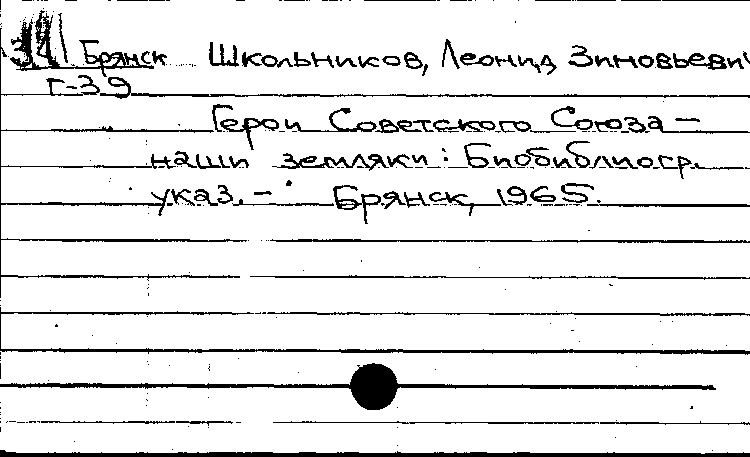 Брянск Школьников, Леонид Зиновьевич
Г-39
Герои Советского Союза —
наши земляки: Биобиблиогр.
указ. — Брянск, 1965.